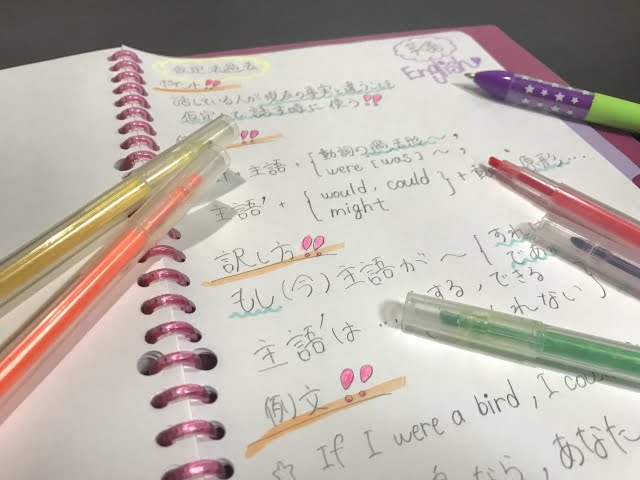 英語
English
仮定法過去
ポイント!!
話している人が現在の事実と違うことを
仮定して話す時に使う!!
!!
主語 + { 動詞の過去形~,
were [was] ~,
主語' + { would, could
might } + 動 原形...
訳し方!!
もし(今)主語が~ { すれ
であ
主語'は... する, できる
れない }
例文!!
☆ If I were a bird, I cou
なら, あなた